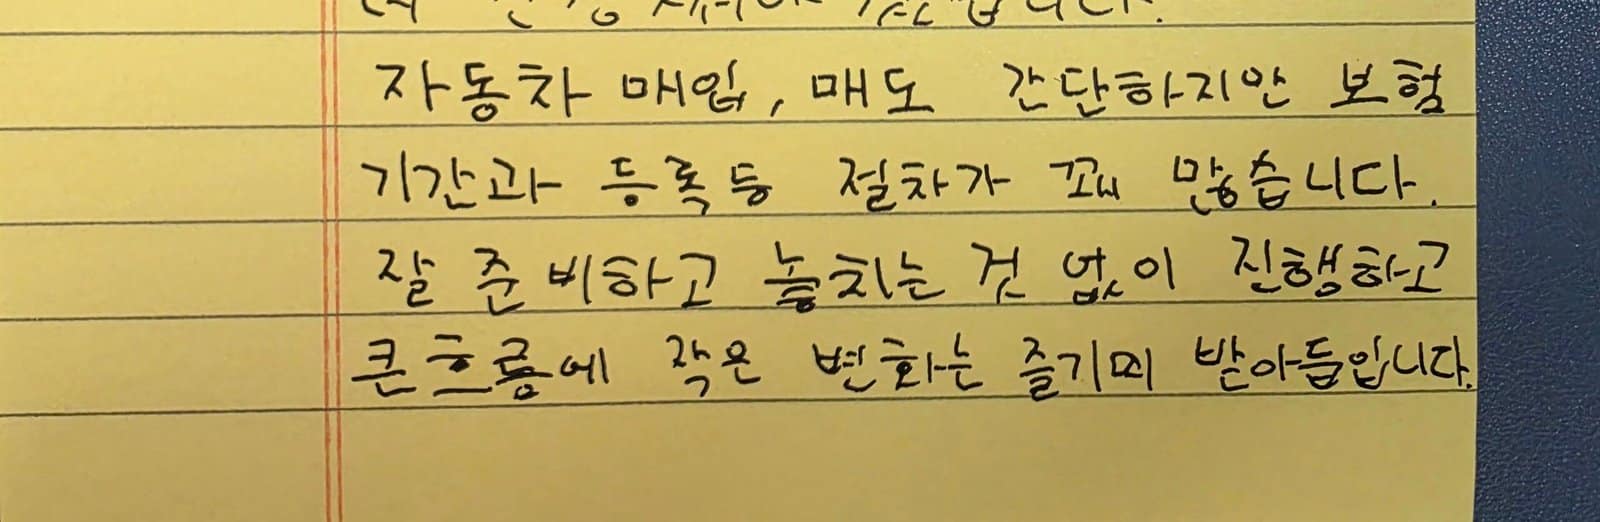 자동차 매입, 매도 간단하지만 보험
기간과 등록등 절차가 꽤 많습니다.
잘 준비하고 놓치는 것 없이 진행하고
큰 흐름에 작은 변화는 즐기며 받아듭입니다.